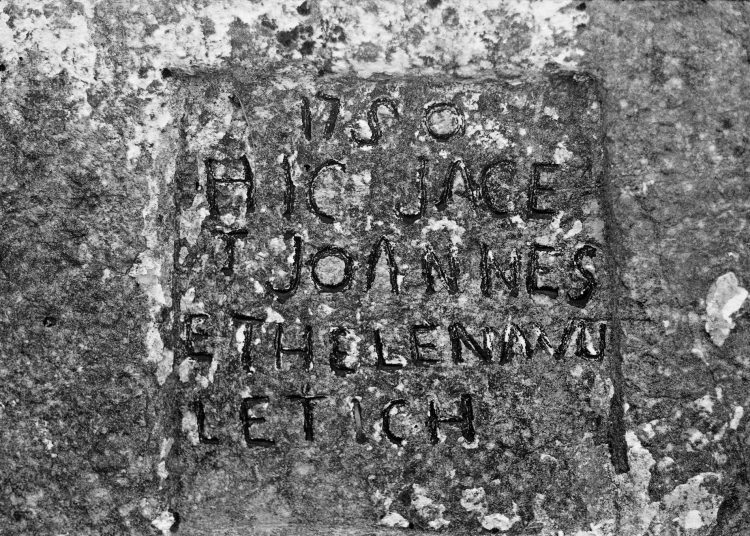 1750
HIC JACE
T JOANNES
ET HELENA VU
LETICH